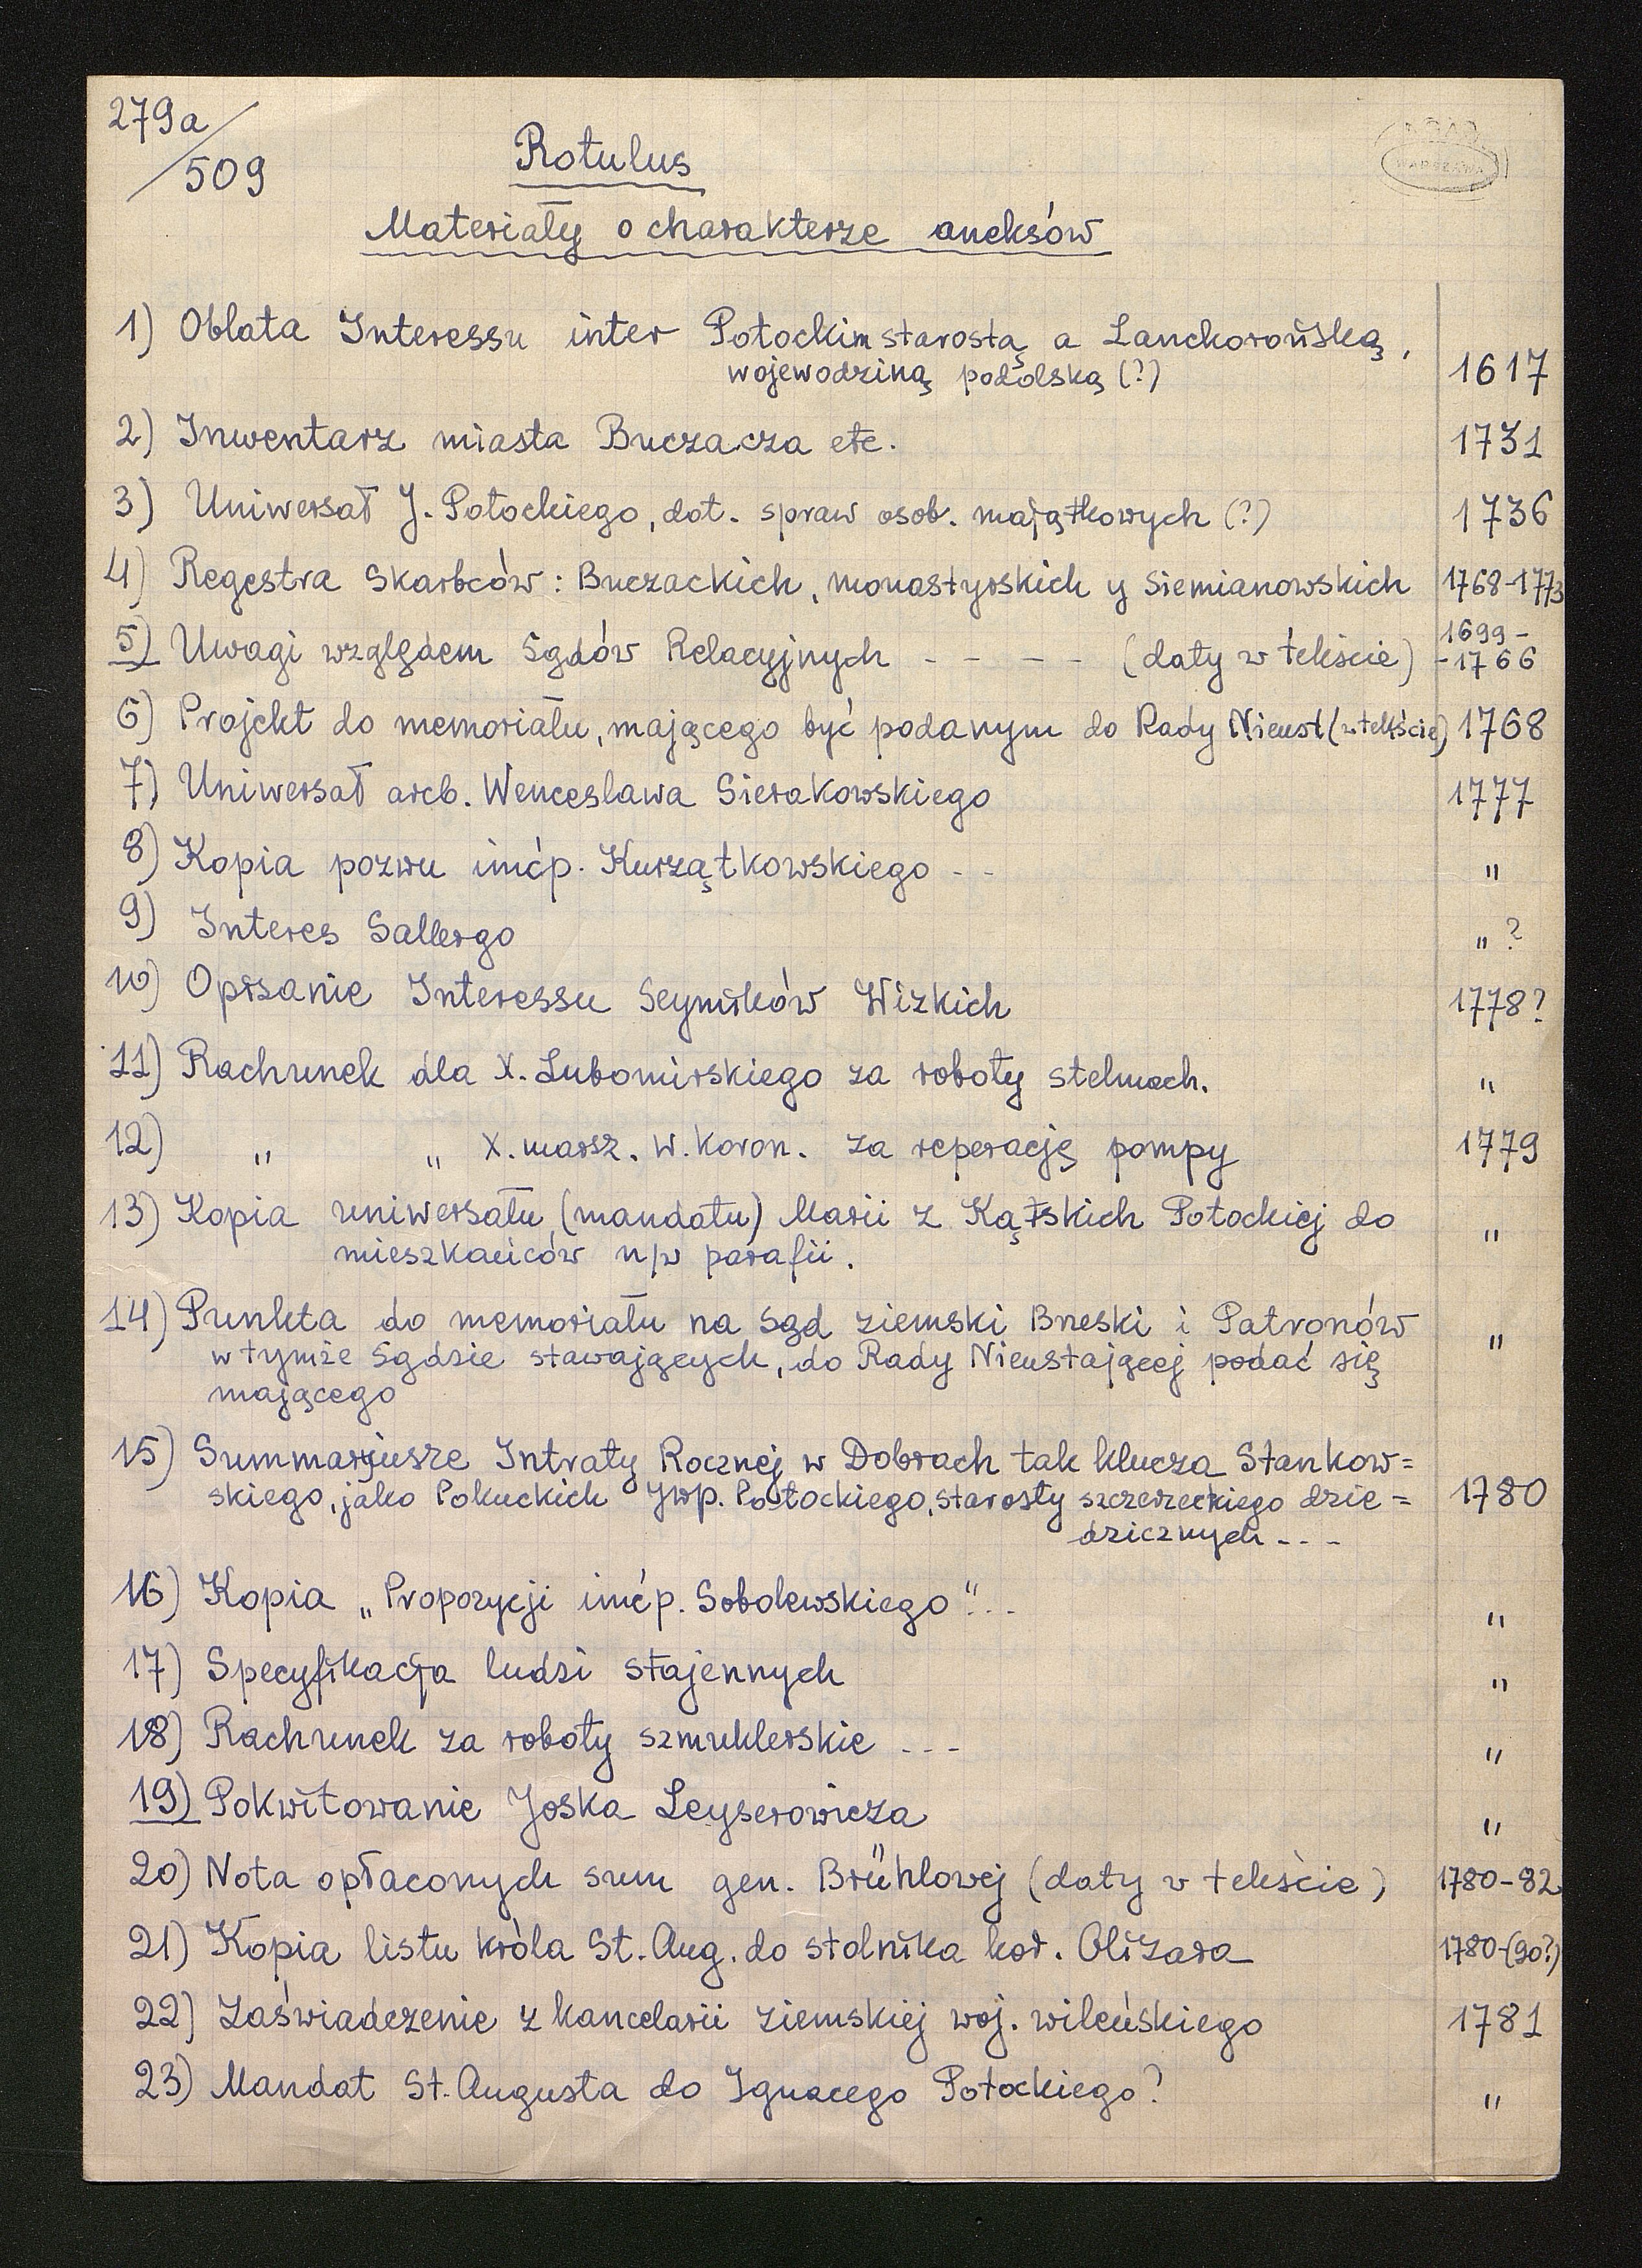 279a/509
AGAD
WARSZAWA
Rotulus
Materiały o charakterze aneksów
1) Oblata Interessu inter Potockim starostą a Lanckorońską, 1617
wojewodziną podolską (?)
2) Inwentarz miasta Buczacza etc. 1731
3) Uniwersał J. Potockiego, dot. spraw osob. majątkowych (?) 1736
4) Regestra Skarbców: Buczackich, monastyrskich y Siemianowskich 1768-1773
5) Uwagi względem Sądów Relacyjnych - - - - (daty w tekście) 1699-
-1766
6) Projekt do memoriału, mającego być podanym do Rady Nieust (w tekście) 1768
7) Uniwersał arcb. Wenceslawa Sierakowskiego 1777
8) Kopia pozwu imćp. Kurzątkowskiego - - "
9) Interes Sallergo " ?
10) Opisanie Interessu Seymików Wizkich 1778?
11) Rachunek dla X. Lubomirskiego za roboty stelmach. "
12) " " X. marsz. w. koron. za reperację pompy 1779
13) Kopia uniwersału (mandatu) Marii z Kątskich Potockiej do "
mieszkańców n/w parafii.
14) Punkta do memoriału na Sąd ziemski Breski i Patronów "
w tymże Sądzie stawających, do Rady Nieustającej podać się
mającego
15) Summarjusze Intraty Rocznej w Dobrach tak klucza Stankow=
skiego, jako Pokuckich Jwp. Potockiego, starosty szczerzeckiego dzie= 1780
dzicznych - - -
16) Kopia „Propozycji imćp. Sobolewskiego" - - "
17) Specyfikacja ludzi stajennych "
18) Rachunek za roboty szmuklerskie - - - "
19) Pokwitowanie Joska Leyserowicza "
20) Nota opłaconych sum gen. Brühlowej (daty w tekście) 1780-82
21) Kopia listu króla St. Aug. do stolnika kor. Olizara 1780-(90?)
22) Zaświadczenie z kancelarii ziemskiej woj. wileńskiego 1781
23) Mandat St. Augusta do Ignacego Potockiego? "